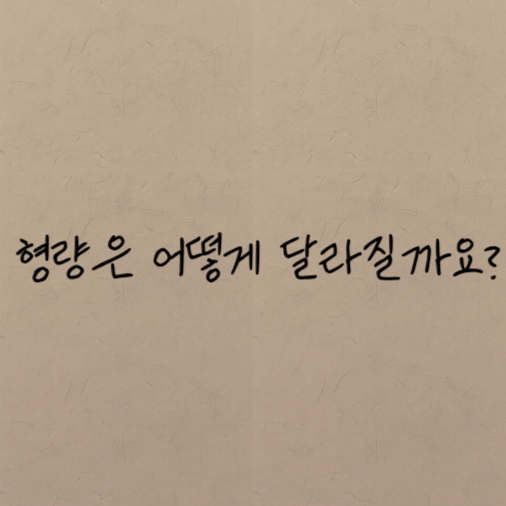 형량은 어떻게 달라질까요?